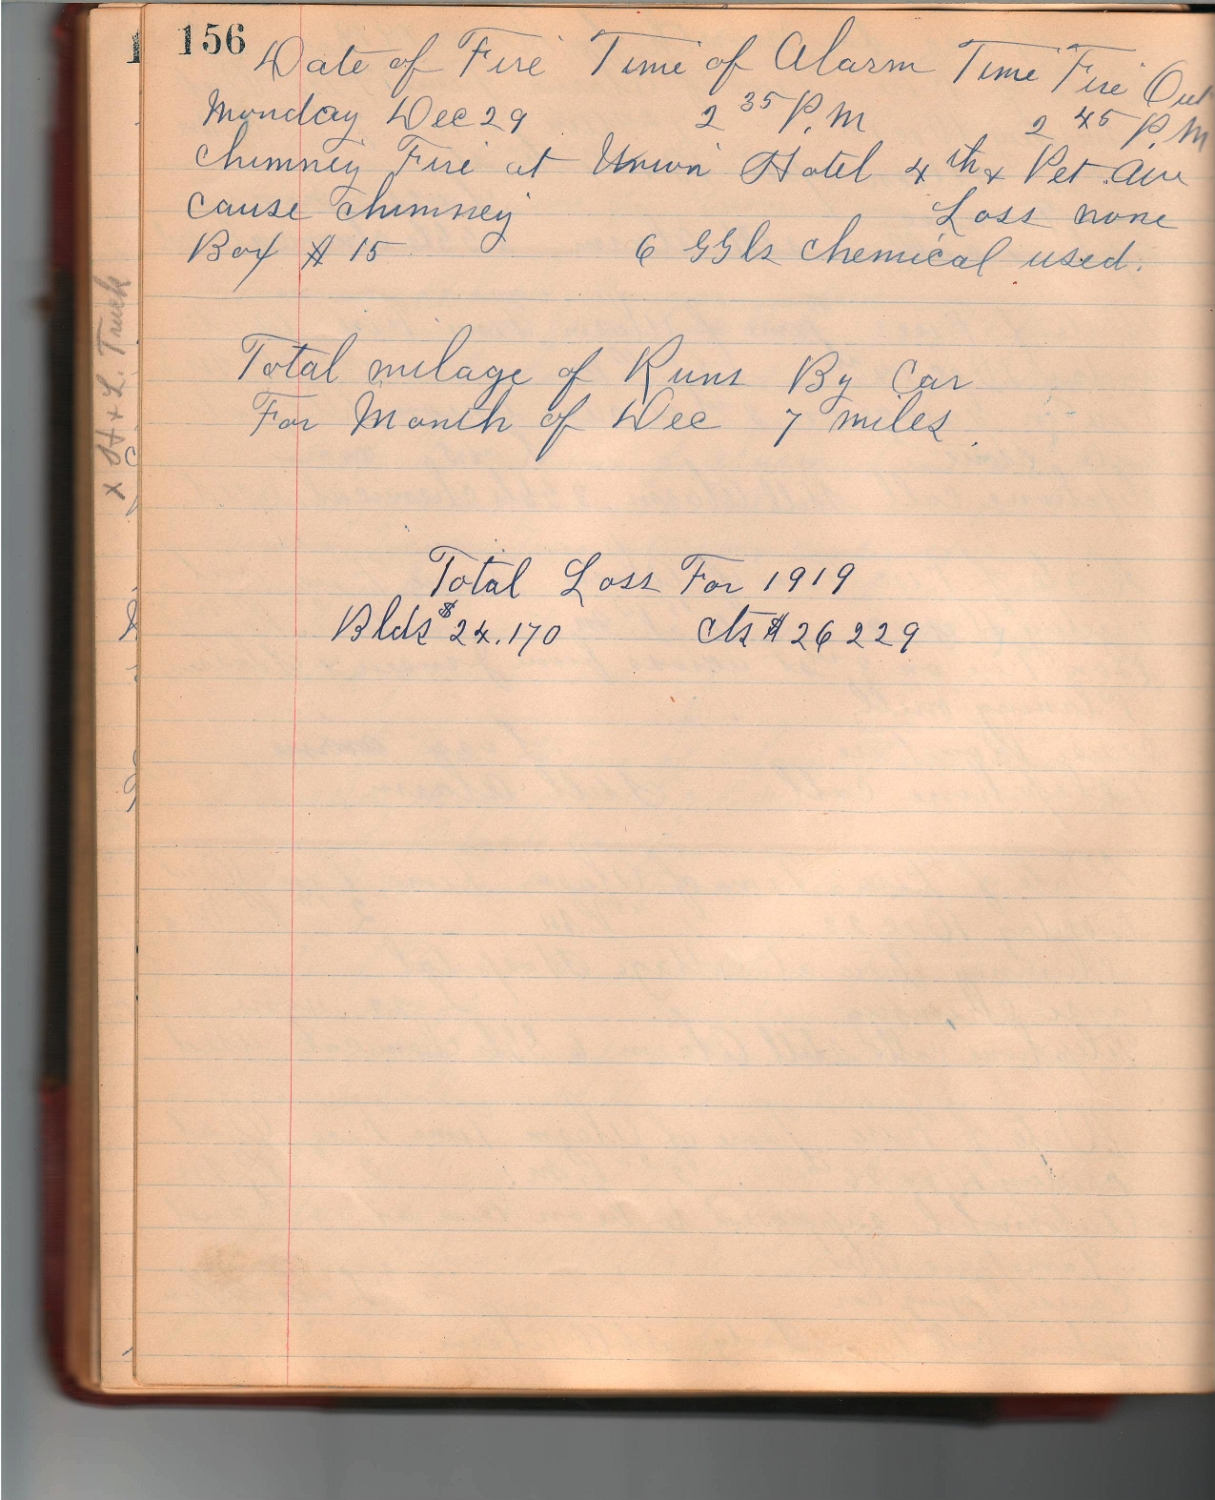 156
Date of Fire Time of Alarm Time Fire Out
Monday Dec 29 2 35 P.M 2 45 P.M
Chimney Fire at Union Hotel 4th & Pet. Ave
Cause Chimney Loss none
Box # 15 6 GGls Chemical used.
Total milage of Runs By Car
For Month of Dec 7 miles.
Total Loss For 1919
Blds $24.170 Cts $26229
x H & L. Truck